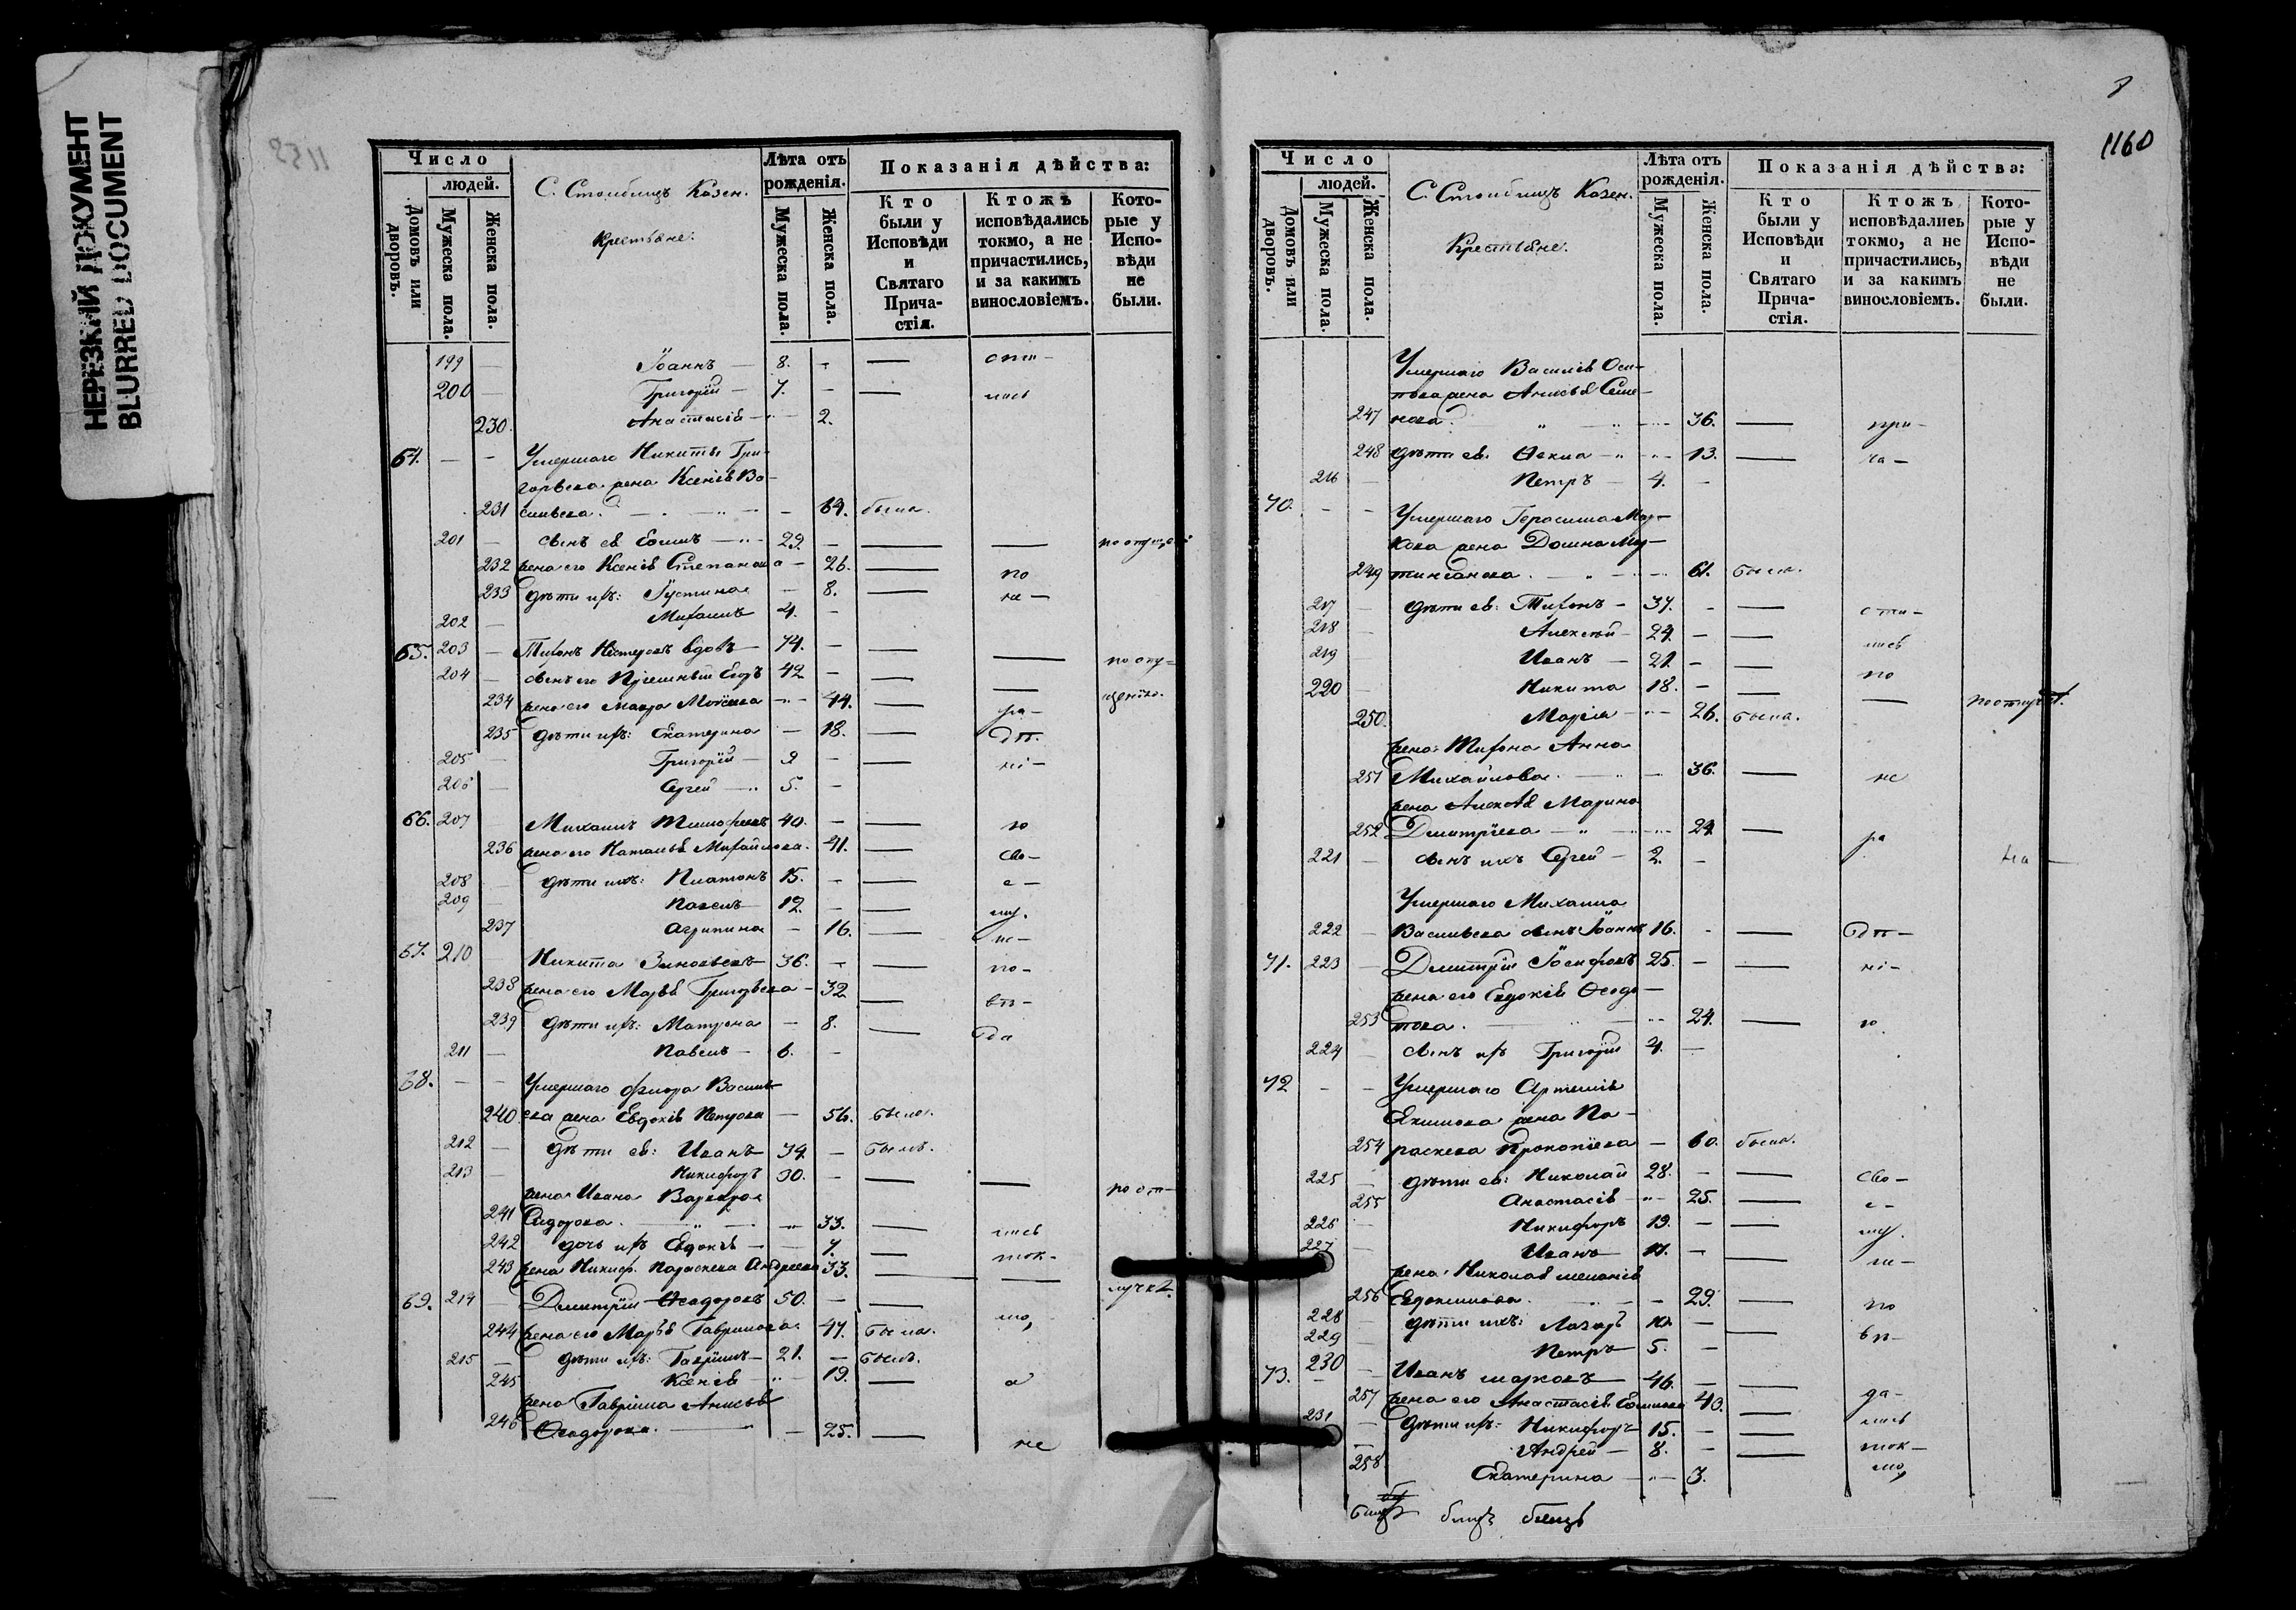 НЕРЕЗКИЙ ДОКУМЕНТ
BLURRED DOCUMENT
Число
людей.
Домовъ или дворовъ.
Мужеска пола.
Женска пола.
С. Столбищъ Казен.
Крестьяне.
Лѣта отъ рожденія.
Мужеска пола.
Женска пола.
Показанія дѣйства:
Кто были у Исповѣди и Святаго Прича-стія.
Ктожъ исповѣдались токмо, а не причастились, и за какимъ винословіемъ.
Кото-рые у Испо-вѣди не были.
199 — Іоаннъ — 8. — — сти-
200 — Григорій — 7. — — лись
230. Анастасія — 2.
64. — — Умершаго Никиты Гри-
горьева жена Ксенія Ва-
231 сильева. — 64. была.
201 — сынъ ея — 29. — — —
232 жена его Ксенія Степанова — 26. — по
233 дѣти ихъ: Іустина — 8. — не-
202 — Михаилъ 4. —
65. 203 — Тихонъ Нестеровъ вдовъ — 74. — — —
204 — сынъ его Егоръ 42 — — —
234 жена его Мавра Моѵсеева — 44. — ра-
235 дѣти ихъ: Екатерина — 18. — дѣ-
205 — Григорій — 9 — — ні-
206 — Сергей — 5. —
66. 207 — Михаилъ Тимофеевъ 40. — — ю
236 жена его Наталья Михайлова. 41. — сво-
208 — дѣти ихъ: Платонъ 15. — — е-
209 — Павелъ 12. — — му.
237 Агрипина — 16. — не-
67. 210 — Никита Зиновьевъ 36. — — по-
238 жена его Марья Григорьева — 32 — вѣ-
239 дѣти ихъ: Матрона — 8. — да
211 — Павелъ — 6. —
68. — — Умершаго Василь-
240 ева жена Евдокія Петрова — 56. была.
212 — дѣти ея: Иванъ 34. — былъ.
213 — Никифоръ 30. — — —
жена Ивана Варвара
241 Сидорова. — 33. — лись
242 дочь ихъ Евдокія — 7. — ток-
243 жена Никиф. Параскева Андреева 33. — —
69. 214 — Дмитрій Ѳеодоровъ 50. — — мо,
244 жена его Марья Гаврилова 47. была.
215 — дѣти ихъ: Гавріилъ — 21. — былъ.
245 Ксенія — 19. — а
жена Гавріила Анисья
246 Ѳеодорова. — 25. — не
1160
Число
людей.
Домовъ или дворовъ.
Мужеска пола.
Женска пола.
С. Столбищъ Казен.
Крестьяне.
Лѣта отъ рожденія.
Мужеска пола.
Женска пола.
Показанія дѣйства:
Кто были у Исповѣди и Святаго Прича-стія.
Ктожъ исповѣдались токмо, а не причастились, и за какимъ винословіемъ.
Кото-рые у Испо-вѣди не были.
Умершаго Василія Оси-
пова жена Анисья Семе-
247 нова. — 36. — при-
248 дѣти ея. Ѳекла — 13. — ча-
216 — Петръ — 4. —
70. — — Умершаго Герасима Мар-
кова жена Домна Мар-
249 — 61. была.
217 — дѣти ея: Тихонъ — 37. — — сти-
218 — Алексѣй — 24. — — лись
219 — Иванъ — 21. — — по
220 — Никита 18. — — —
250. Марія — 26. была.
жена Тихона Анна
251 Михайлова. — 36. — не
жена Алексѣя Марина
252 Дмитріева — 24. — ра
221 — сынъ ихъ Сергей — 2. —
Умершаго Михаила
222 — Васильева сынъ Іоаннъ 16. — — дѣ-
71. 223 — Дмитрій Іосифовъ 25. — — ні-
жена его Евдокія Ѳеодо-
253 това. — 24. — ю
224 — сынъ ихъ Григорій 4. —
72 — — Умершаго Артемія
Екимова жена Па-
254 раскева Прокопіева — 60. была.
225 — дѣти ея: Николай 28. — — сво-
255 Анастасія — 25. — е-
226 — Никифоръ 19. — — му.
227 — Иванъ — — не-
жена Николая Меланія
256 Евдокимова. — 29. — по
228 — дѣти ихъ: Лазарь 10. —
229 — Петръ 5. — — вѣ-
73. 230 — Иванъ Марковъ 46. — — да-
257 жена его Анастасія 40. — лись
231 — дѣти ихъ: Никифоръ 15. — —
— Андрей — 8. — — ток-
258 Екатерина — 3. мо,